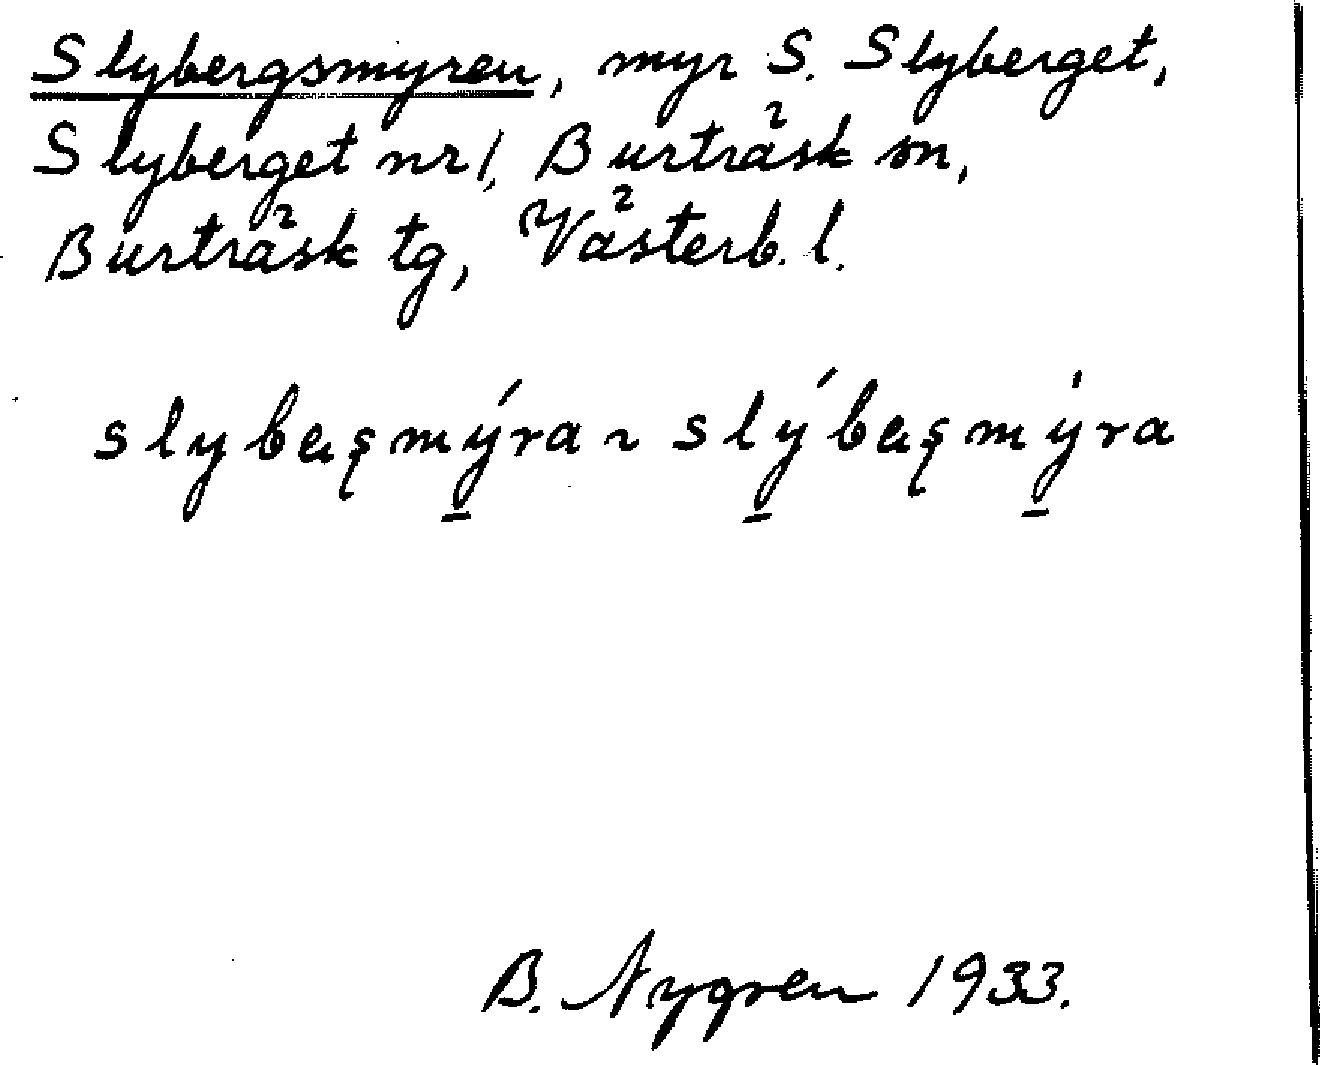 Slybergsmyren, myr S. Slyberget,
Slyberget nr 1, Burträsk sn,
Burträsk tg, Västerb. l.
B. Nygren 1933.